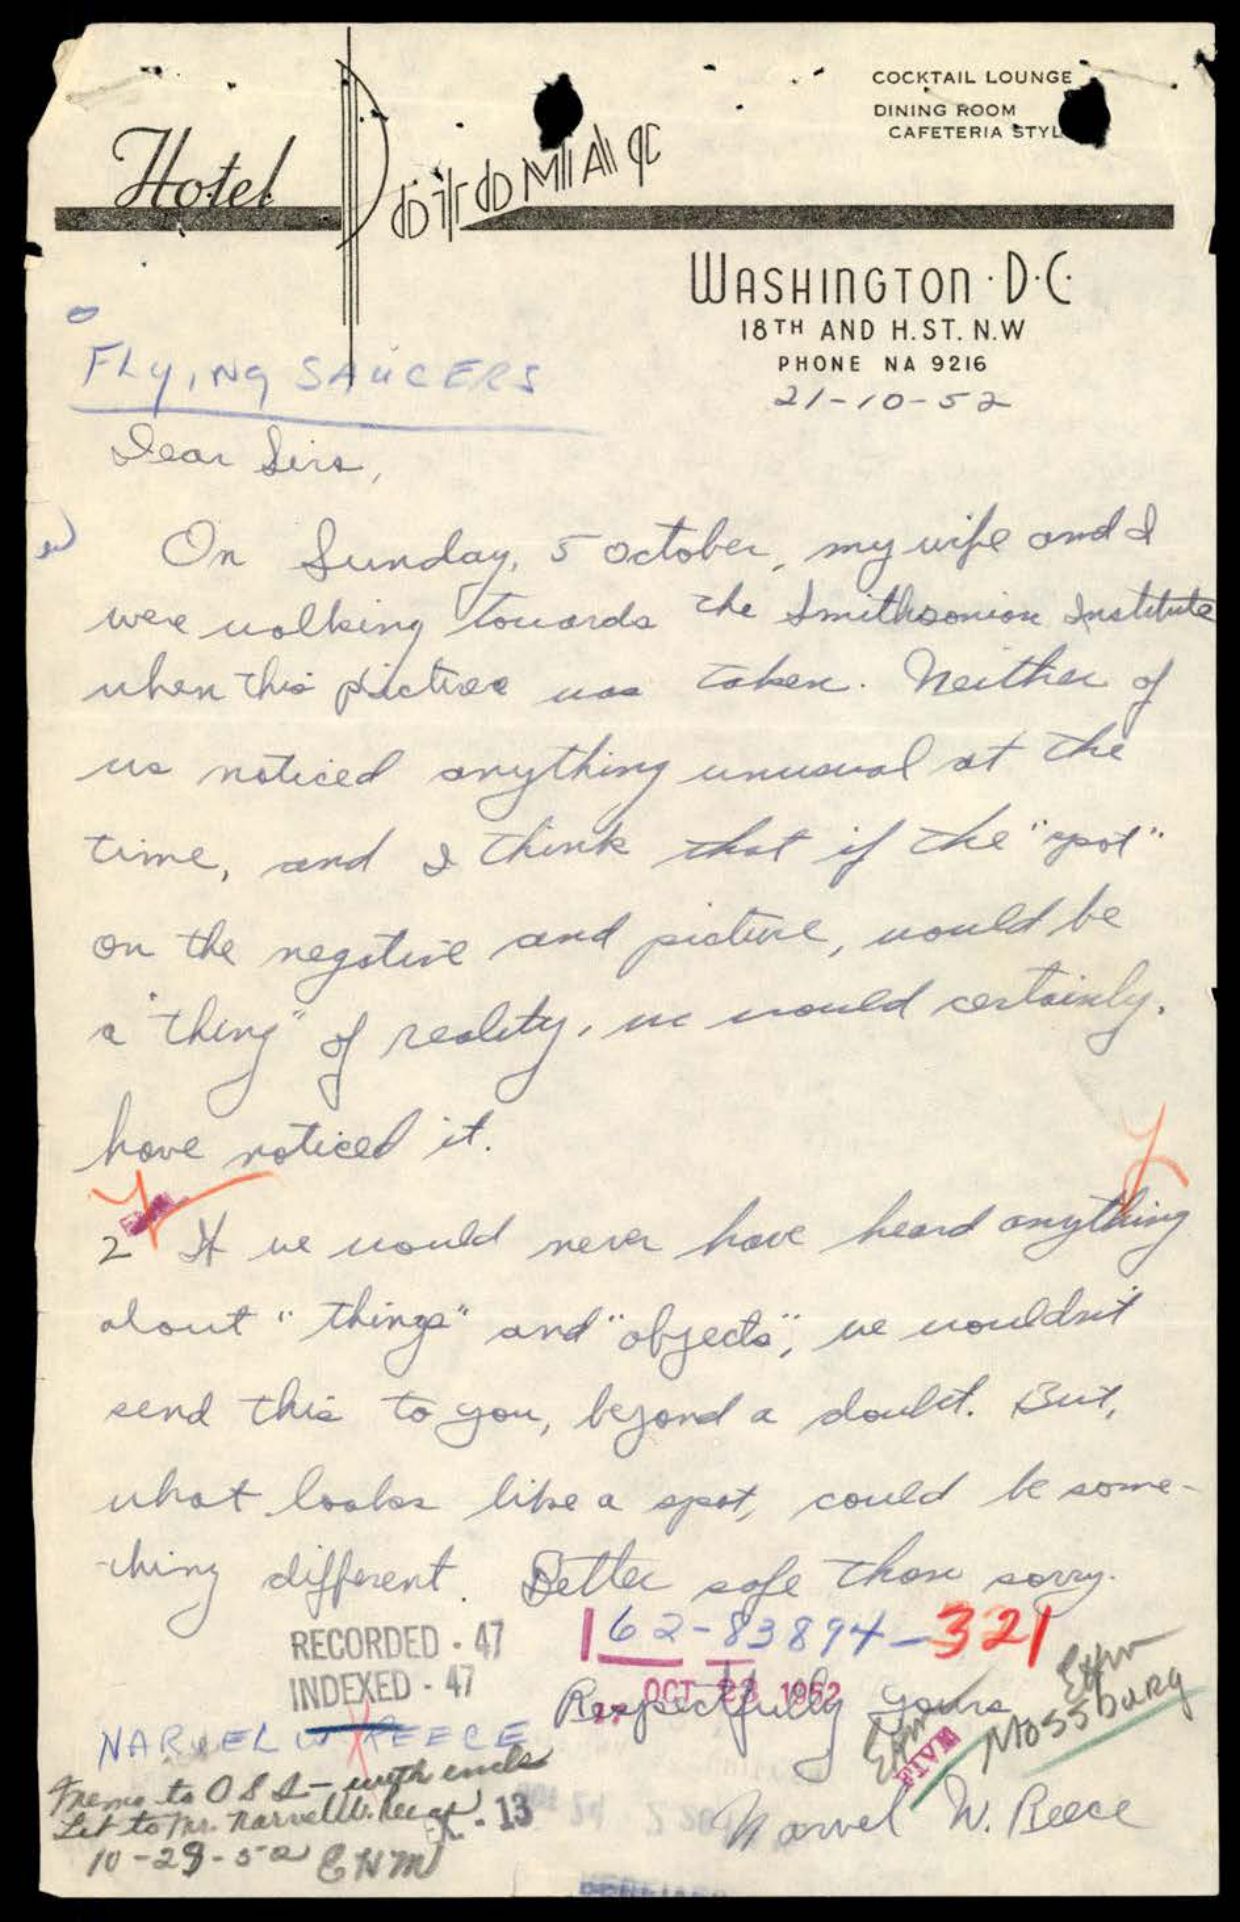 COCKTAIL LOUNGE
DINING ROOM
CAFETERIA STYL
Hotel Potomac
WASHINGTON · D·C·
18TH AND H. ST. N.W
PHONE NA 9216
21-10-52
FLYING SAUCERS
Dear Sirs,
On Sunday, 5 October, my wife and I
were walking towards the Smithsonian Institute
when this picture was taken. Neither of
us noticed anything unusual at the
time, and I think that if the "spot"
on the negative and picture, would be
a "thing" of reality, we would certainly
have noticed it.
2 If we would never have heard anything
about "things" and "objects", we wouldn't
send this to you, beyond a doubt. But,
what looks like a spot, could be some-
thing different. Better safe than sorry.
RECORDED - 47
162-83894-321
INDEXED - 47
OCT 23 1952
Respectfully yours
EHM
MOSSBURG
FIVE
NARVEL W REECE
Memo to OSI - with encls
Let to Mr. Narvel W. Reece
- 13
10-29-52 EHM
Narvel W. Reece